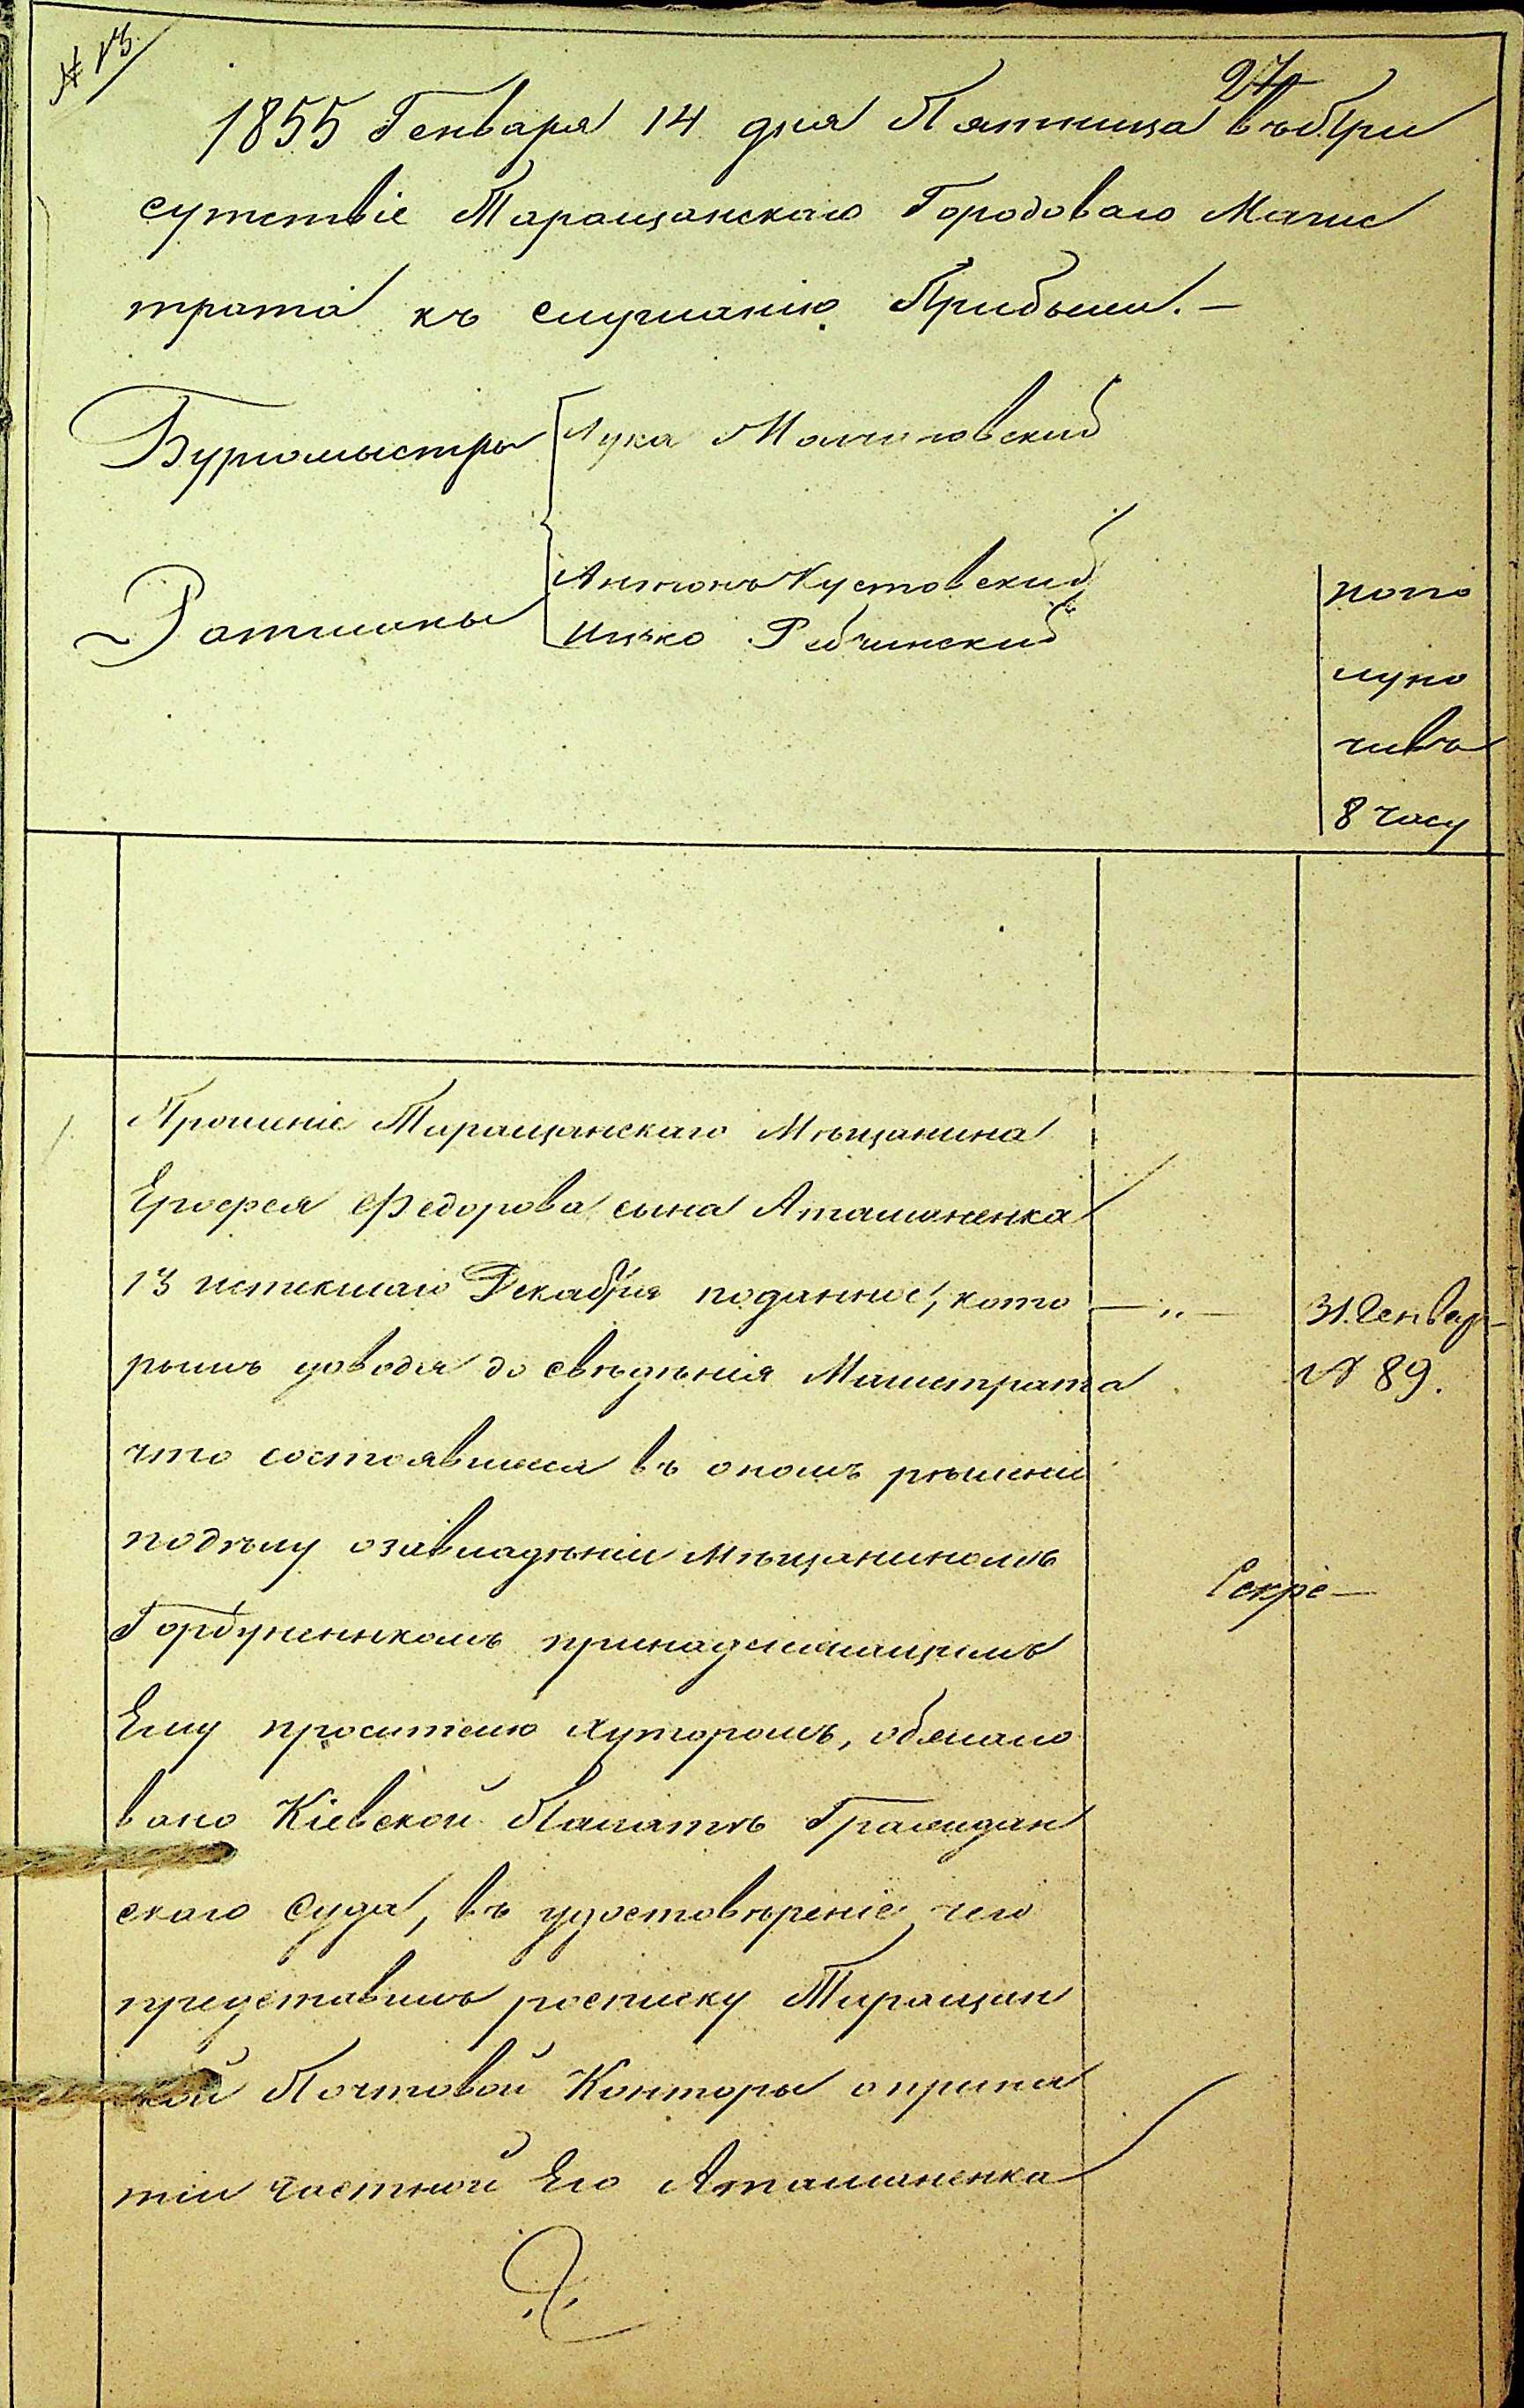 № 13
27
1855 Генваря 14 дня Пятница въ При
сутствіе Таращанскаго Городоваго Магис
трата къ слушанію Прибыли.—
Бургомыстръ Лука
Ратманы Антонъ Кустовский
Ицько
попо
луно
чивъ
8 часу
1. Прошеніе Таращанскаго Мѣщанина
Ерофея Федорова сына Атаманенка
13 истекшаго Декабря поданное, кото —„— 31. Генвар
рымъ доводя до свѣдѣнія Магистрата № 89.
что состоявшееся въ ономъ рѣшеніи
подѣлу озавладѣніи Мѣщаниномъ
Горбуненкомъ принадлежащимъ Секре—
Ему просителю хуторомъ, обжало
вано Кіевской Палатѣ Граждан
скаго Суда, въ удостовѣреніе чего
представилъ росписку Таращан
ской Почтовой Конторы о приня
тіи частной Его Атаманенка